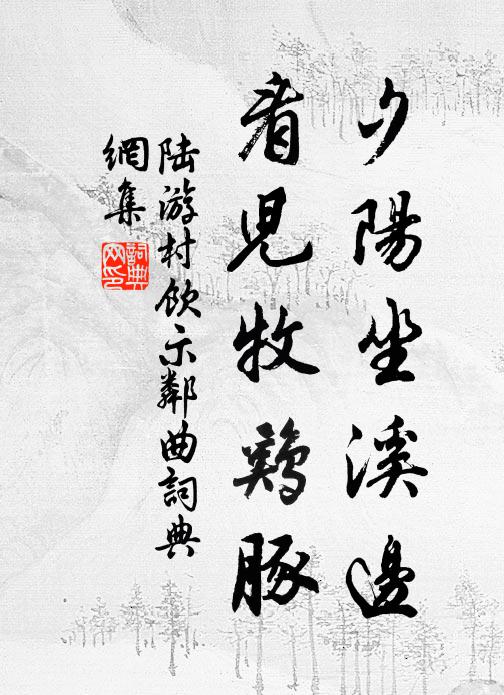 夕陽坐溪邊
看児牧鷄豚
陸游村飲示鄰曲詞典
網集
詞典
网印